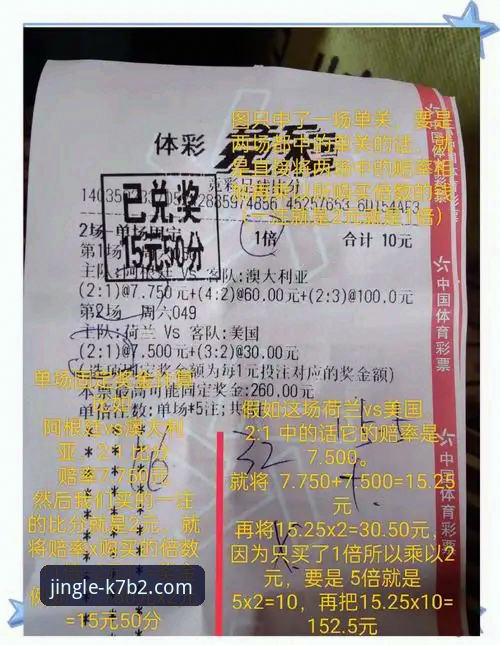 体彩
已兑奖
15元50分
1倍
合计 10元
2场-单场固定
第1场
主队:阿根廷 VS 客队:澳大利亚
(2:1)@7.750元+(4:2)@60.00元+(2:3)@100.0元
第2场 周六049
主队:荷兰 Vs 客队:美国
(2:1)@7.500元+(3:2)@30.00元
本票最高可能固定奖金:260.00元
单倍注数:单场*5注;共
中国体育彩票
中国体育彩票
图只中了一场单关，要是
两场都中的单关的话，就
是直接将两场中的赔率相
（一注就是2元就是1倍）
单场固定奖金计算
阿根廷vs澳大利
亚，2:1 比分
赔率7.750元
然后我们买的一注
的比分就是2元，就
将赔率x购买的倍数
=15元50分
假如这场荷兰vs美国
2:1 中的话它的赔率是
7.500。
就将 7.750+7.500=15.25
元
再将15.25x2=30.50元，
因为只买了1倍所以乘以2
元，要是 5倍就是
5x2=10，再把15.25x10=
152.5元
jingle-k7b2.com